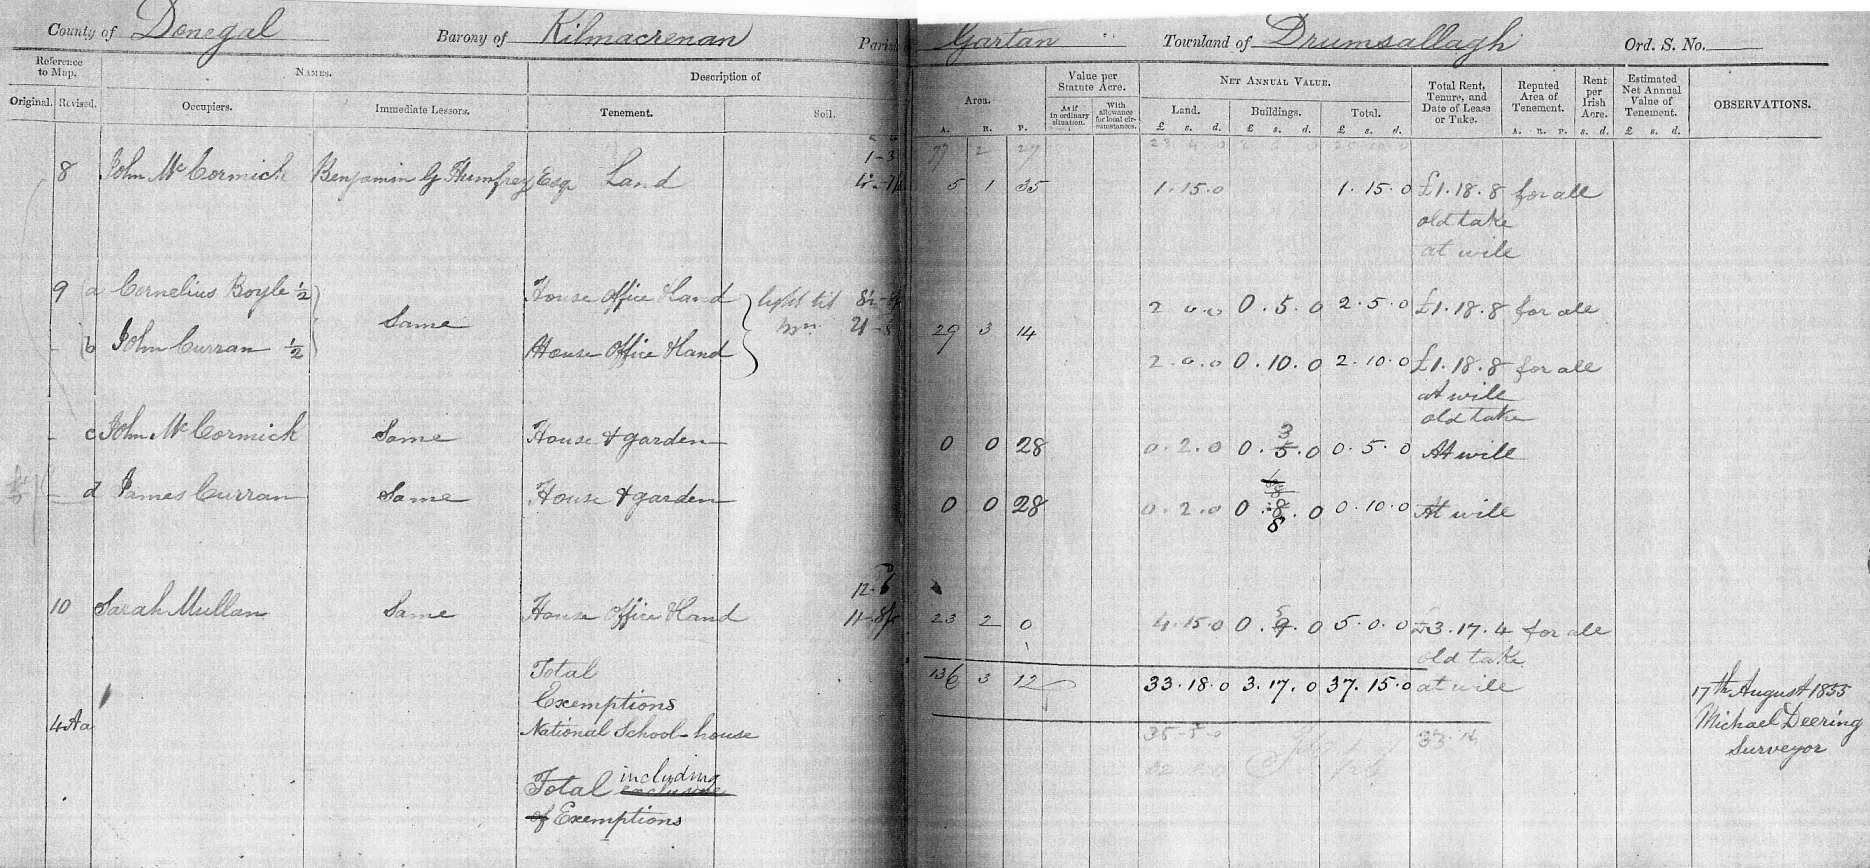 County of Donegal Barony of Kilmacrenan Parish Gartan Townland of Drumsallagh Ord. S. No.
Reference to Map. NAMES. Description of Area. Value per Statute Acre. NET ANNUAL VALUE. Total Rent, Tenure, and Date of Lease or Take. Reputed Area of Tenement. Rent per Irish Acre. Estimated Net Annual Value of Tenement. OBSERVATIONS.
Original. Revised. Occupiers. Immediate Lessors. Tenement. Soil. As if in ordinary situation. With allowance for local circumstances. Land. Buildings. Total.
A. R. P. £ s. d. £ s. d. £ s. d. A. R. P. s. d. £ s. d.
1-3
8 John McCormick Benjamin G Humfrey Esq Land 5 1 35 1.15.0 1.15.0 £1.18.8 for all
old take
at will
9 a Cornelius Boyle 1/2 House Office & Land light til 2 0.0 0.5.0 2.5.0 £1.18.8 for all
Same 29 3 14
b John Curran 1/2 House Office & Land 2.0.0 0.10.0 2.10.0 £1.18.8 for all
At will
old take
c John McCormick Same House & garden 0 0 28 0.2.0 0.5.0 3 0.5.0 At will
d James Curran Same House & garden 0 0 28 0.2.0 0.8.0 8 0.10.0 At will
12-6
10 Sarah Mullan Same House Office & Land 23 2 0 4.15.0 0.9.0 5 5.0.0 £3.17.4 for all
old take
Total 136 3 12 33.18.0 3.17.0 37.15.0 at will
Exemptions
4Aa National School-house
17th August 1855
Michael Deering
Surveyor
Total including exclusive
of Exemptions